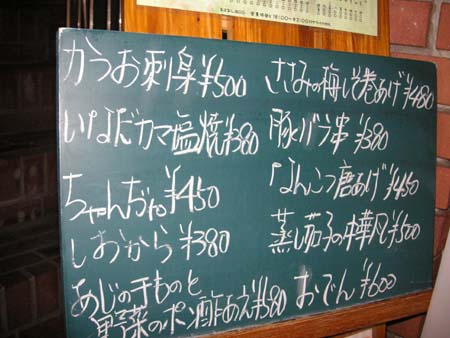 かつお刺身¥500
いなだカマ塩焼¥380
ちゃんぢゃ¥450
しおから¥380
あじの干ものと
野菜のポン酢あえ¥580
ささみの梅しそ巻あげ¥480
豚バラ串¥380
なんこつ唐あげ¥450
蒸し茄子の中華風¥500
おでん¥600